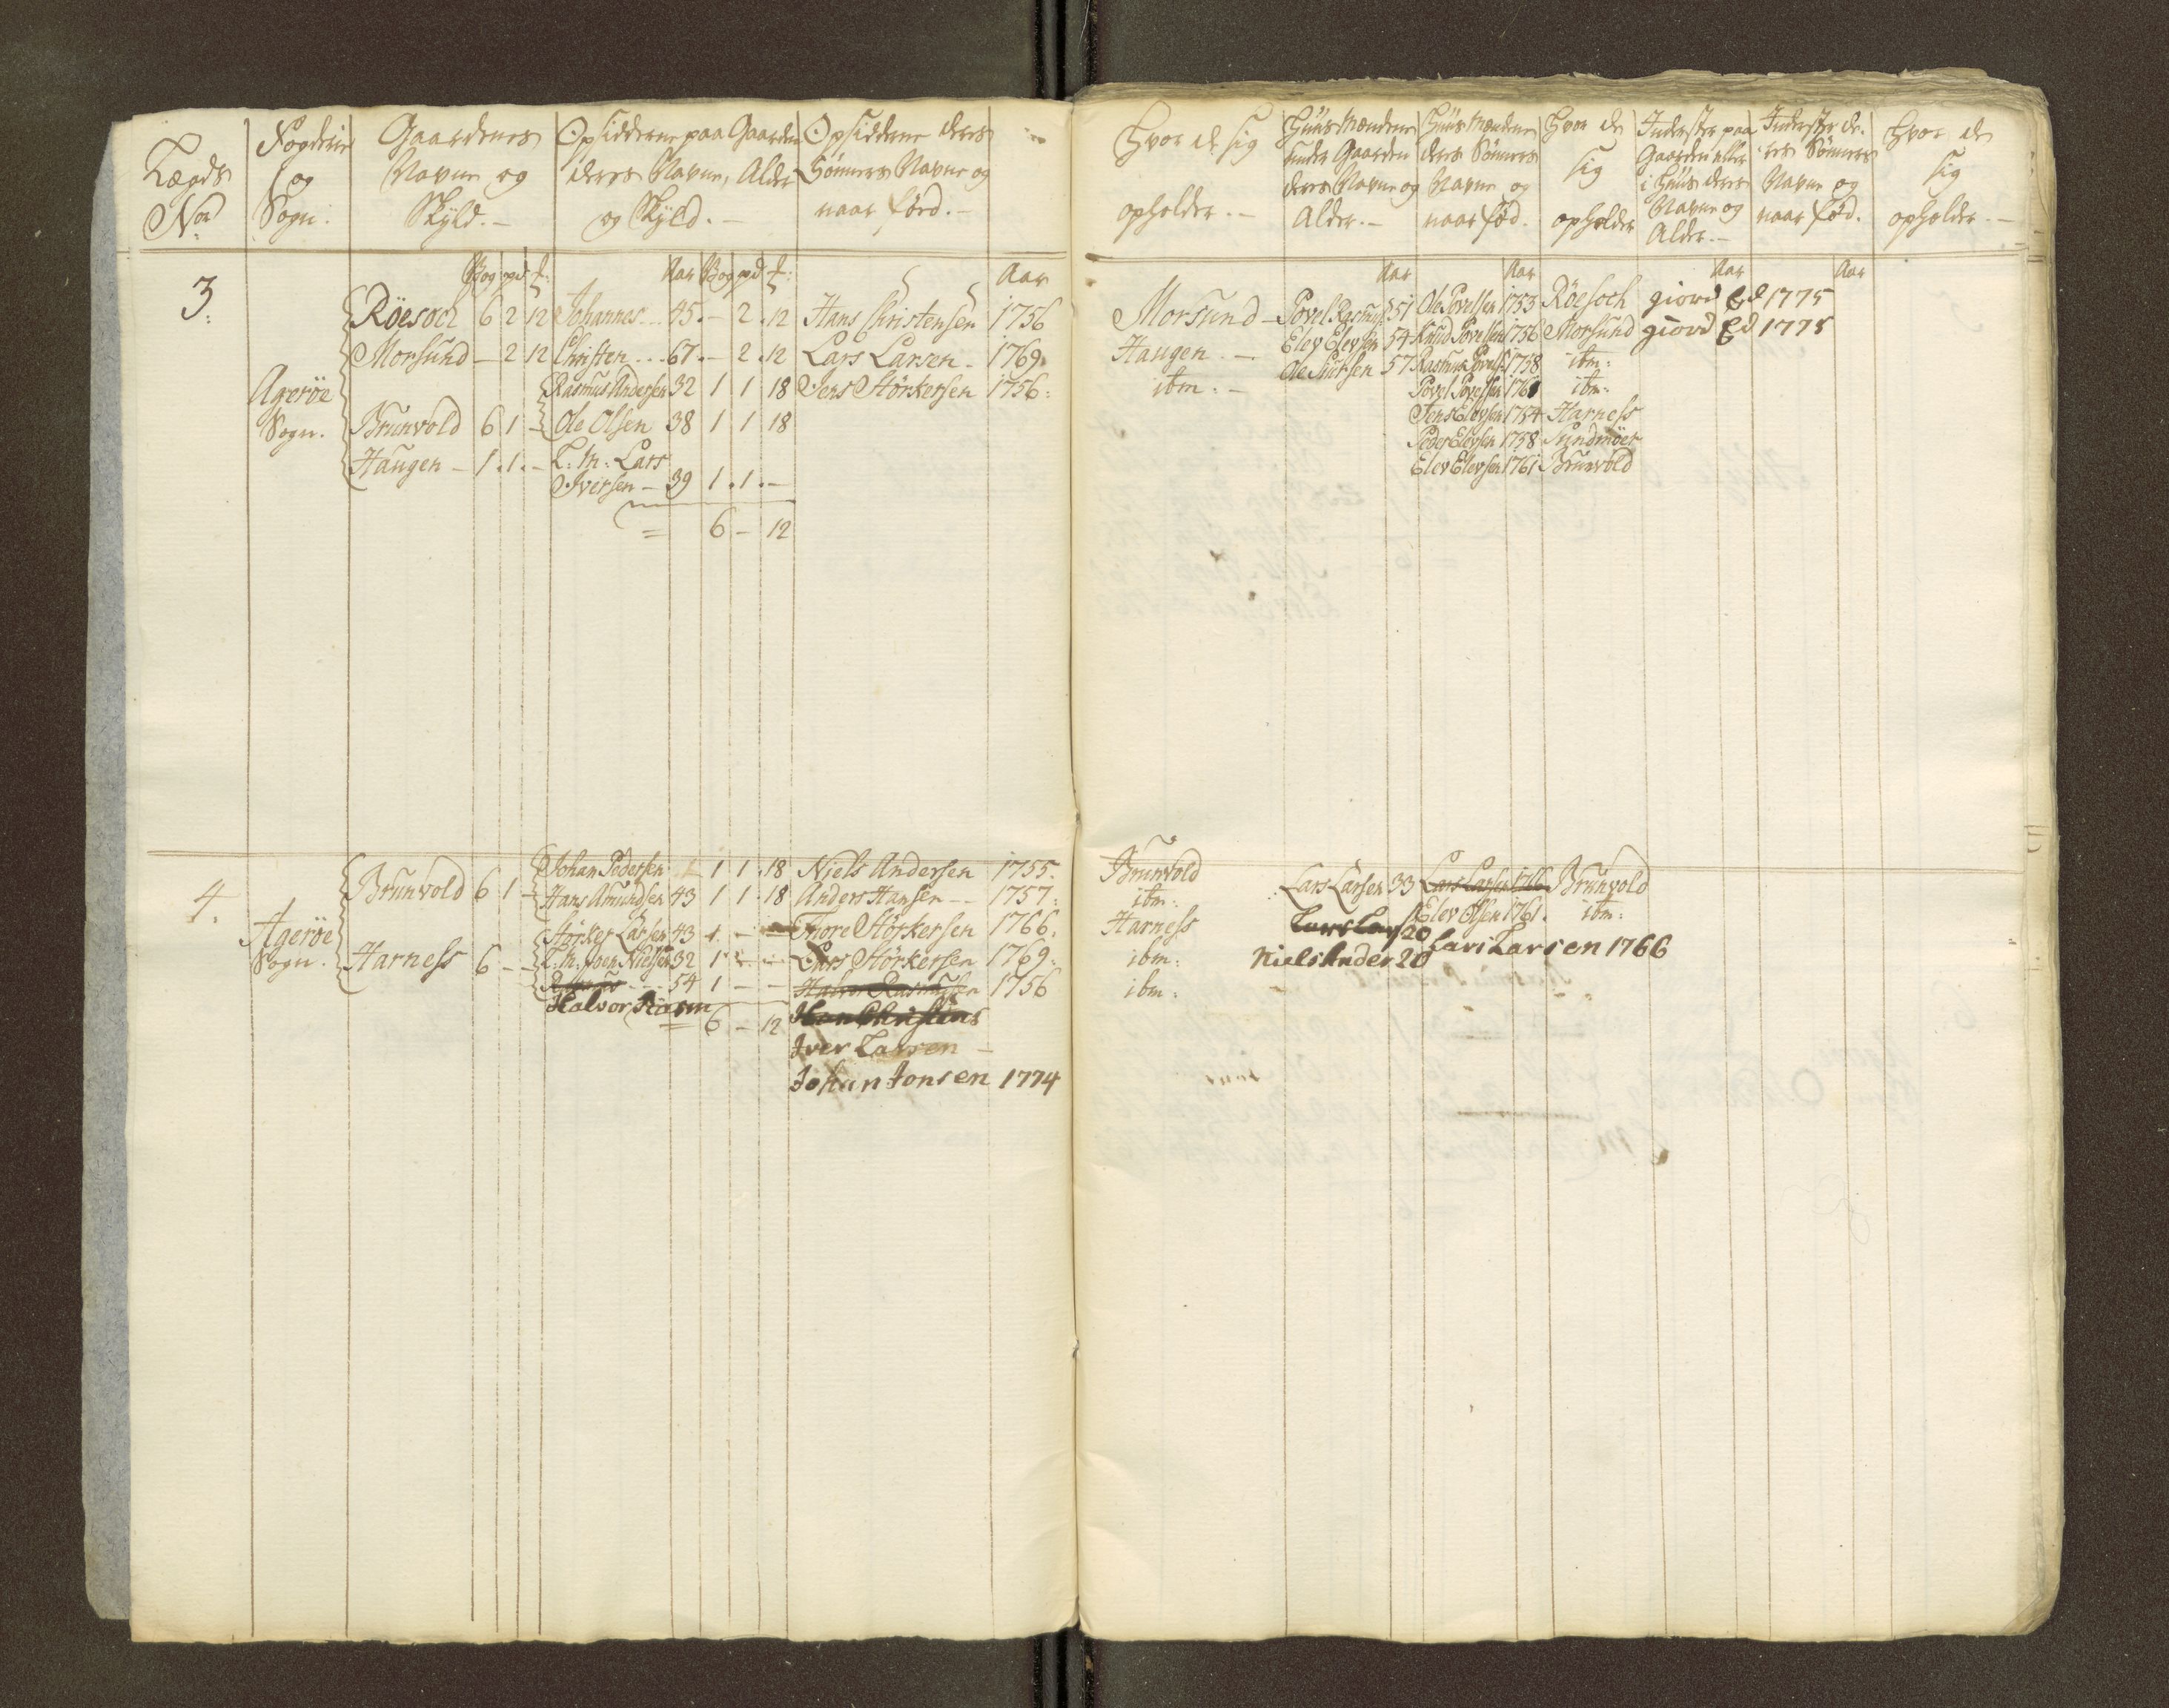 Lægds
No
Fogderie
og
Sogn.
Gaardenes
Navne og
Skyld.
Opsidderne paa Gaarden
deres Navne, Alder
og Skyld.
Opsidderne deres
Sønners Navne og
naar förd.
Hvor de sig
opholder.
Huus Mændene
under Gaarden
deres Navne og
Alder.
Huus Mændene
deres Sønners
Navne og
naar fød.
Hvor de
sig
opholder
Inderster paa
Gaarden eller
i Huus deres
Navne og
Alder.
Inderster de-
res Sønners
Navne og
naar fød.
Hvor de
sig
opholder.
Vog pd Aar Vog pd Aar
Aar Aar Aar Aar
3.
Agerøe
Sogn.
Röesoch 6 2 12 Johannes 45 - 2 . 12 Hans Christensen 1756
Morsund - 2 12 Christen 67 - 2 . 12 Lars Larsen - 1769.
Rasmus Andersen 32 1 1 18 Jens Störkersen 1756:
Brunvold 6 1 - Ole Olsen 38 1 1 18
Haugen - 1 . 1 . - L: M: Lars
Iversen - 39 1 . 1 . -
= 6 - 12
Morsund - Povel Rasmus 51 Ole Povelsen 1753 Röesoch giord Ed 1775
Haugen. - Elev Elevsen 54 Knud Povelsen 1756 Morsund giord Ed 1775
ibm: - Ole 57 Rasmus Povels 1758 ibm:
Povel Povelsen 1761 ibm:
Jens Elevsen 1754 Harness
Peder Elevsen 1758 Sundmöer
Elev Elevsen 1761 Brunvold
4.
Agerøe
Sogn.
Brunvold 6 1 - Johan Pedersen 1 1 . 18 Niels Andersen 1755.
Hans Amundsen 43 1 1 . 18 Anders Hansen - - 1757:
Störker Larsen 43 1. - - Thore Störkersen 1766.
Harness 6 - - L. M. Iver Nielsen 32 1 Lars Störkersen 1769:
54 1 - - Halvor Rasmussen 1756
Halvor Rasm
= 6 - 12 Hans Christens
Iver Larsen -
Johan Jonsen 1774
Brunvold Lars Larsen 33 Lars Larsen 1766 Brunvold
ibm: Elev Olsen 1761. ibm:
Harness Lars Lars 20
ibm: Niels Ander 20 Lars Larsen 1766
ibm: